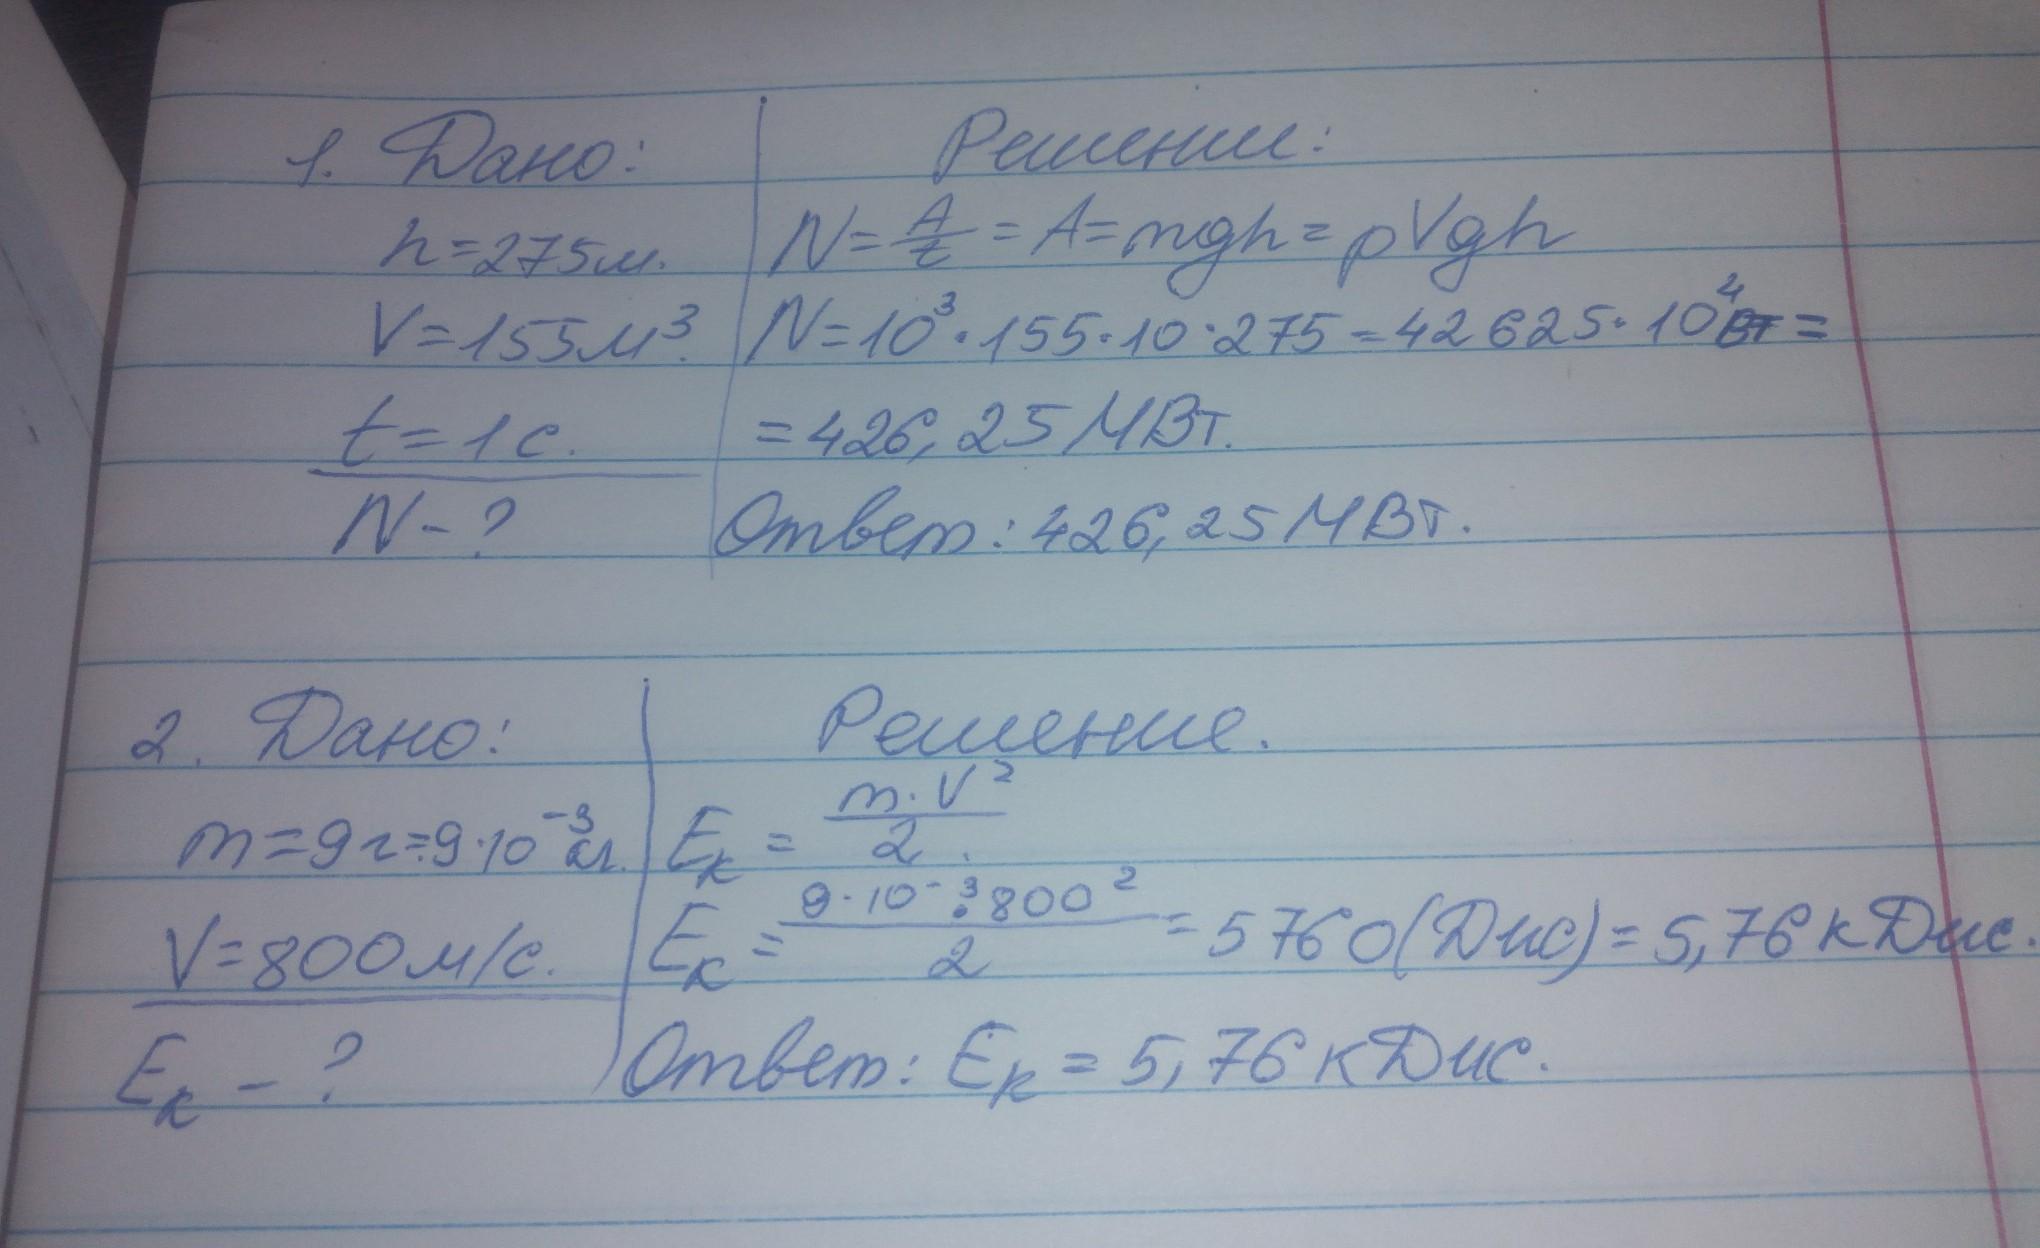 1. Дано:
h=275м.
V=155м³.
t=1с.
N-?
Решение:
N=A/t=A=mgh=ρVgh
N=10³·155·10·275=42625·10⁴Вт=
=426,25МВт.
Ответ: 426,25МВт.
2. Дано:
m=9г=9·10⁻³кг.
V=800м/с.
Eк-?
Решение.
Eк=m·V²/2.
Eк=9·10⁻³·800²/2=5760(Дж)=5,76кДж.
Ответ: Eк=5,76кДж.